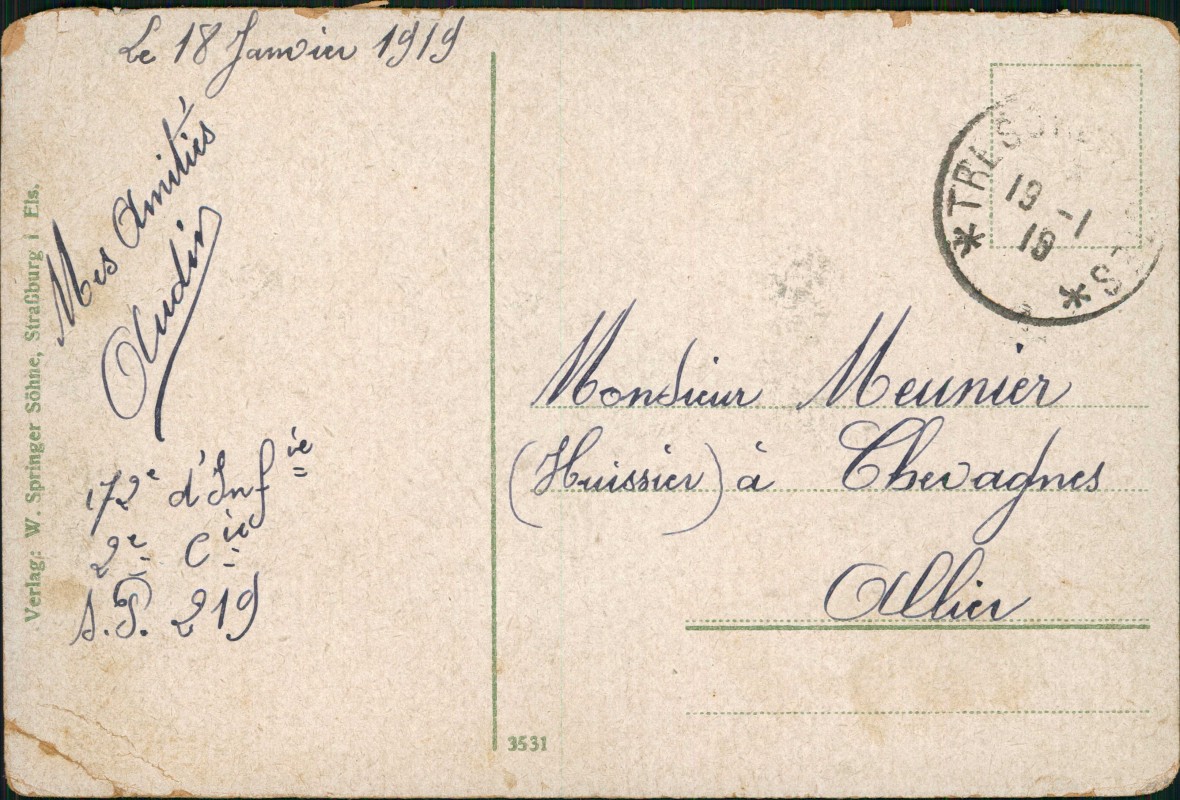 Le 18 Janvier 1919
Mes Amitiés
Audin
172e d'Infie
2e Cie
S.P. 219
Verlag: W. Springer Söhne, Straßburg i Els.
19 -1
19
Monsieur Meunier
(Huissier) à Chevagnes
Allier
3531